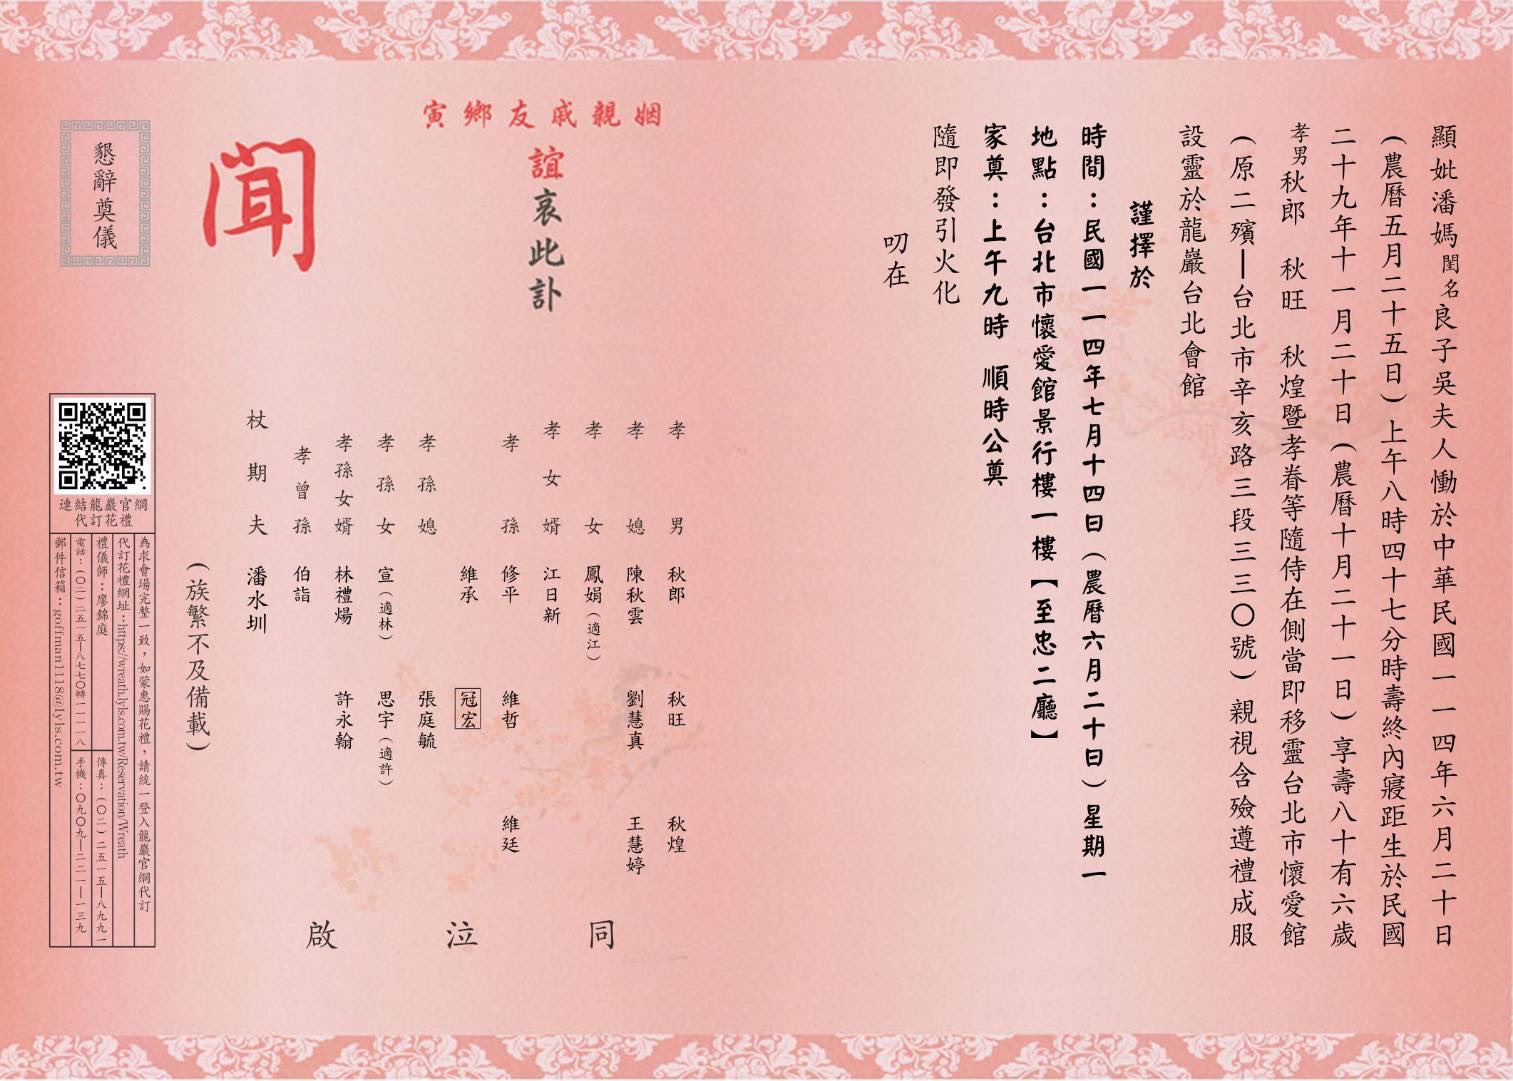 顯妣潘媽閨名良子吳夫人慟於中華民國一一四年六月二十日
(農曆五月二十五日)上午八時四十七分時壽終內寢距生於民國
二十九年十一月二十日(農曆十月二十一日)享壽八十有六歲
孝男秋郎 秋旺 秋煌暨孝眷等隨侍在側當即移靈台北市懷愛館
(原二殯—台北市辛亥路三段三三〇號)親視含殮遵禮成服
設靈於龍巖台北會館
謹擇於
時間:民國一一四年七月十四日(農曆六月二十日)星期一
地點:台北市懷愛館景行樓一樓【至忠二廳】
家奠:上午九時 順時公奠
隨即發引火化
叨在
姻親戚友鄉寅
誼哀此訃
聞
孝男 秋郎 秋旺 秋煌
孝媳 陳秋雲 劉慧真 王慧婷
孝女 鳳娟(適江)
孝女婿 江日新
孝孫 修平 維哲 維廷
維承 冠宏
孝孫媳 張庭毓
孝孫女 宣(適林) 思宇(適許)
孝孫女婿 林禮煬 許永翰
孝曾孫 伯詣
杖期夫 潘水圳
(族繁不及備載)
同泣啟
懇辭奠儀
連結龍巖官網
代訂花禮
為求會場完整一致,如蒙惠賜花禮,請統一登入龍巖官網代訂
代訂花禮網址:https://wreath.lyls.com.tw/Reservation/Wreath
禮儀師:廖錦庭
傳真:(〇二)二五一五—八九九一
電話:(〇二)二五一五—八七七〇轉一一一八
手機:〇九〇九—二二一—一三九
郵件信箱:goffman1118@lyls.com.tw